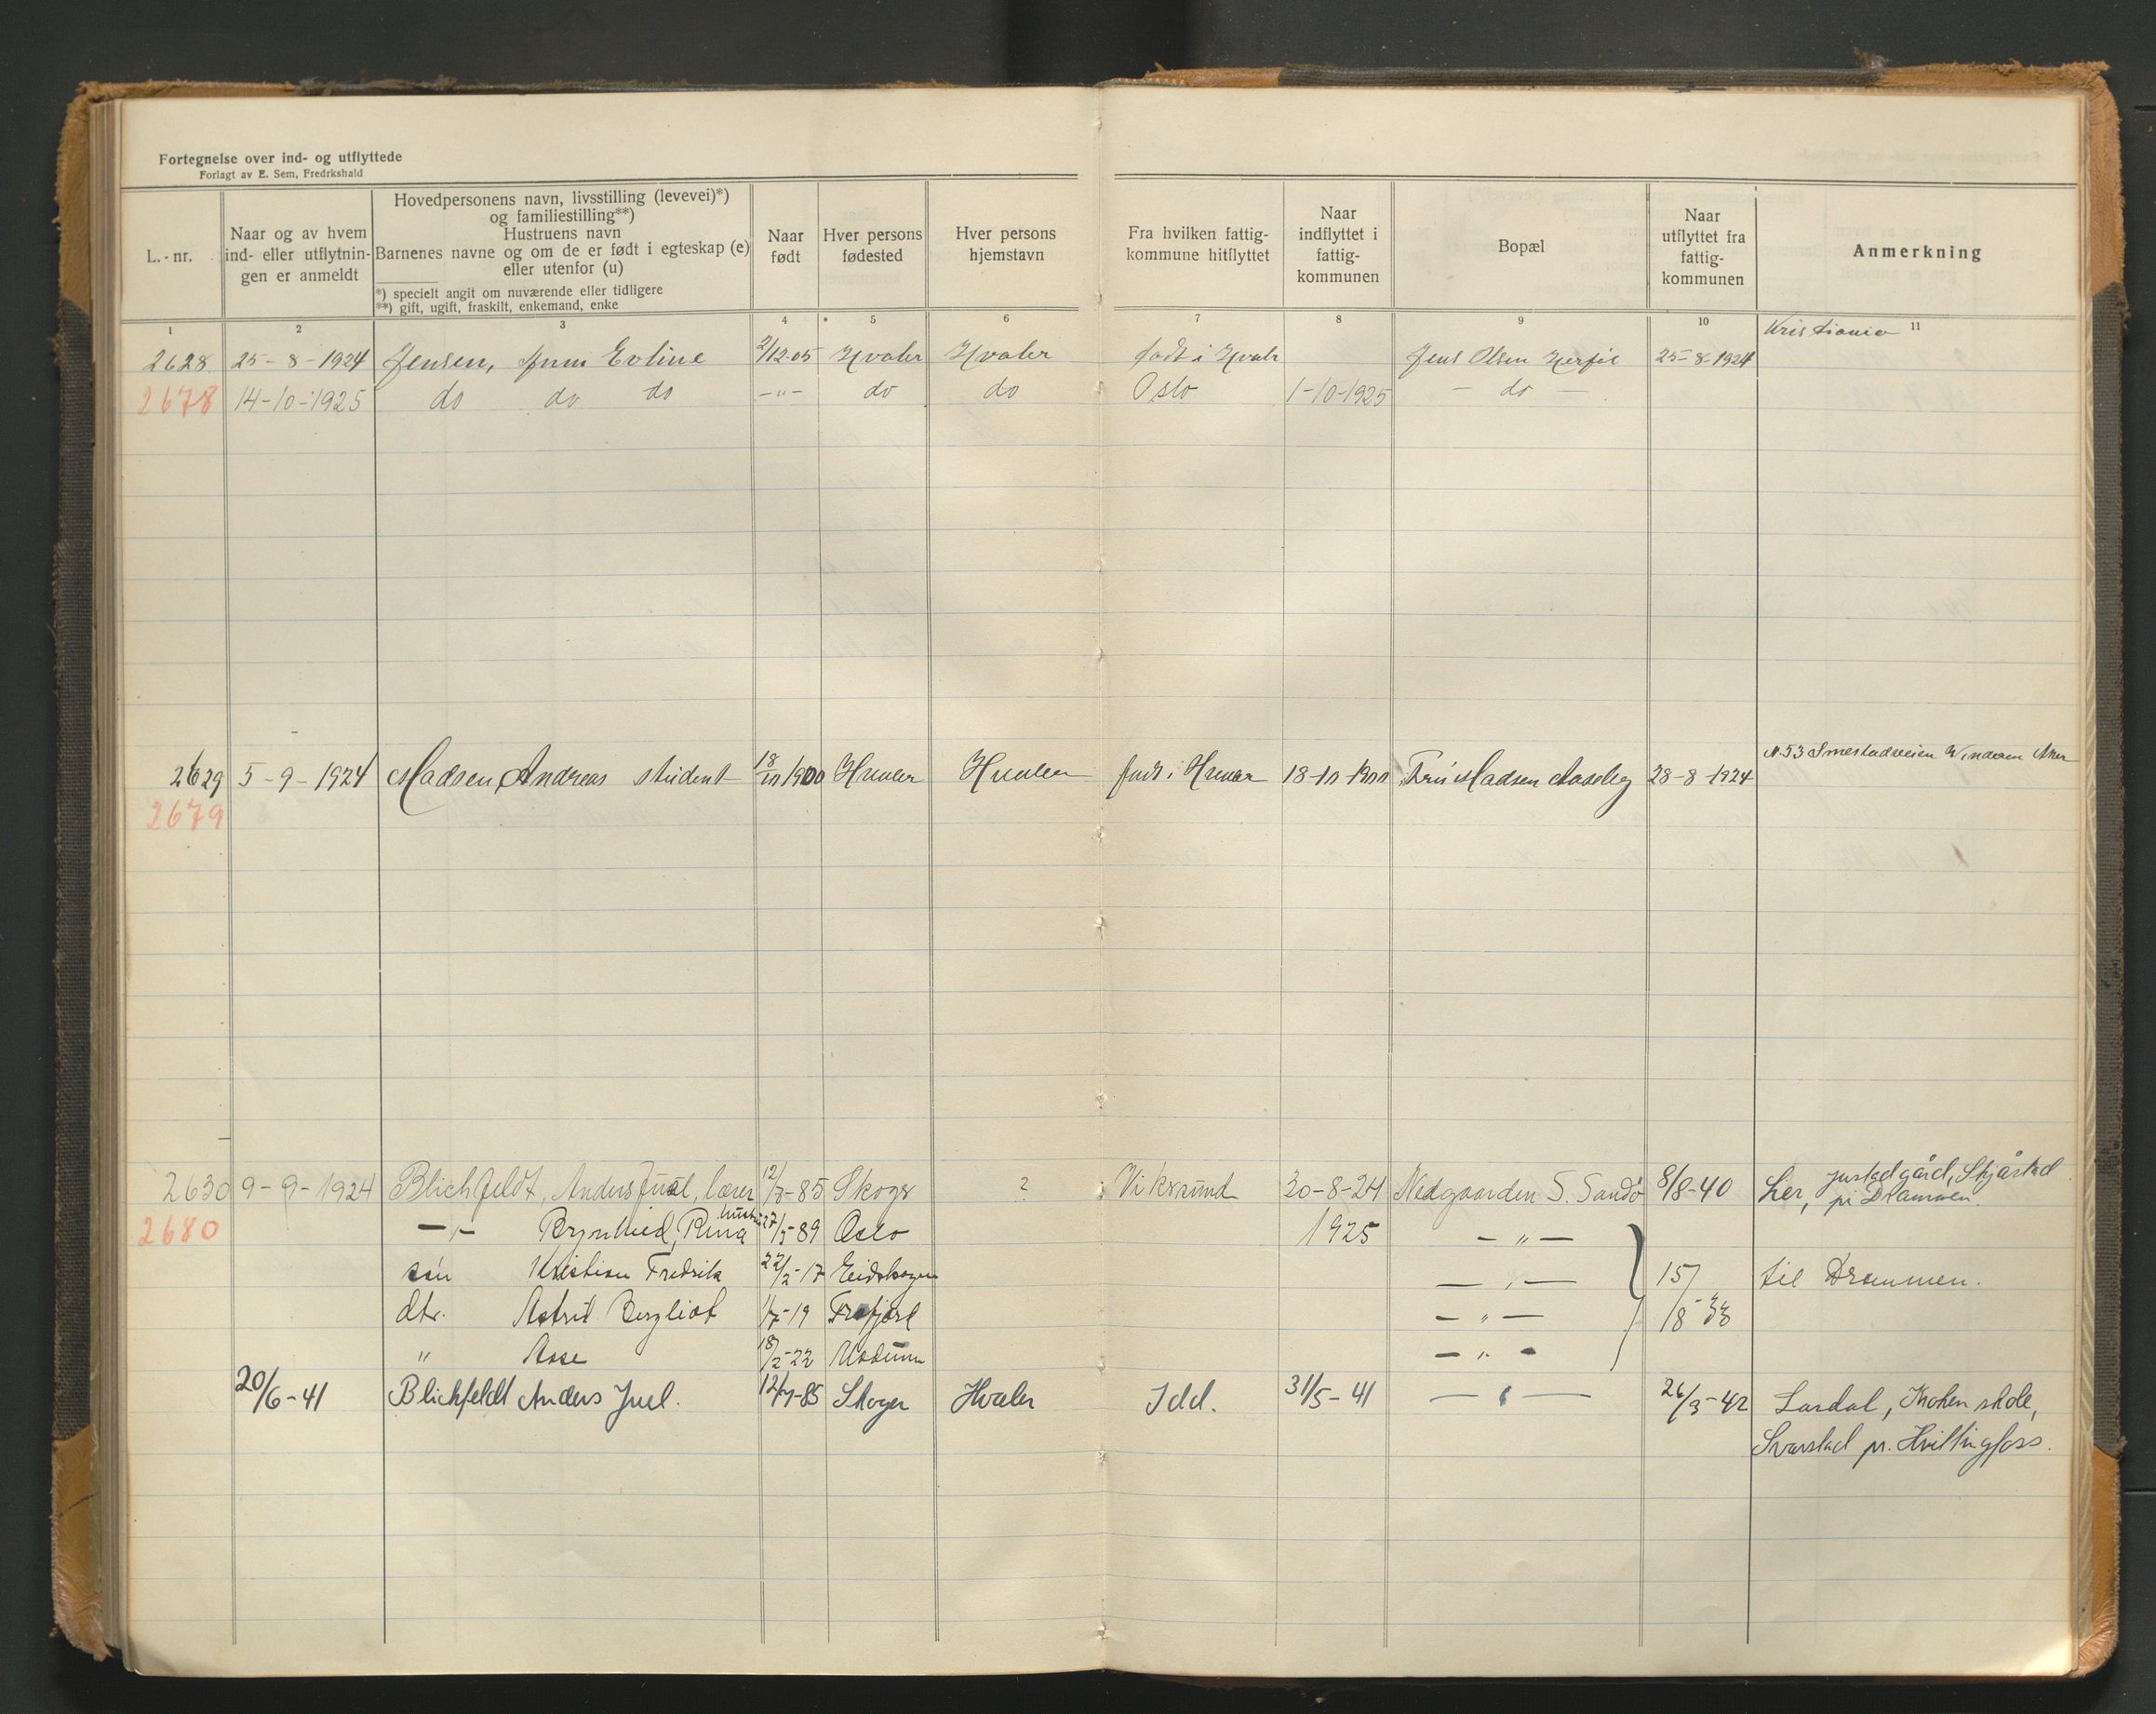 Fortegnelse over ind- og utflyttede
Forlagt av E. Sem, Fredrkshald
L.-nr.
Naar og av hvem ind- eller utflytnin-gen er anmeldt
Hovedpersonens navn, livsstilling (levevei)*) og familiestilling**)
Hustruens navn
Barnenes navne og om de er født i egteskap (e) eller utenfor (u)
*) specielt angit om nuværende eller tidligere
**) gift, ugift, fraskilt, enkemand, enke
Naar født
Hver persons fødested
Hver persons hjemstavn
Fra hvilken fattig-kommune hitflyttet
Naar indflyttet i fattig-kommunen
Bopæl
Naar utflyttet fra fattig-kommunen
Anmerkning
1 2 3 4 5 6 7 8 9 10 11
Kristiania
2628 25-8-1924 Jensen, Evline 2/12-05 Hvaler Hvaler født i Hvaler Jens Olsen 25-8-1924
2678 14-10-1925 do do do -"- do do Oslo 1-10-1925 - do -
N.53 Smestadveien Vinderen Aker
2629 5-9-1924 Madsen Andreas student 18/10 1900 Hvaler Hvaler født i Hvaler 18-10-1900 Fru Madsen 28-8-1924
2679
2630 9-9-1924 Blichfeldt, Anders Juel, lærer 12/7-85 Skoger ? Vikersund 30-8-24 Nedgaarden S. Sandö 8/8-40 Lier, gård, Skjåstad
pr Drammen.
2680 -"- hustru 27/5-89 Oslo 1925 -"-
sön Kristian Fredrik 22/2-17 Eidskogen -"- 15/ til Drammen.
dtr. Astrid Bergliot 1/7-19 Frafjord -"- /8-33
" Aase 18/2-22 Modum -"-
20/6-41 Blichfeldt Anders Juel. 12/7-85 Skoger Hvaler Idd. 31/5-41 -"- 26/3-42 Lardal, skole,
Svarstad pr. Hvittingfoss.